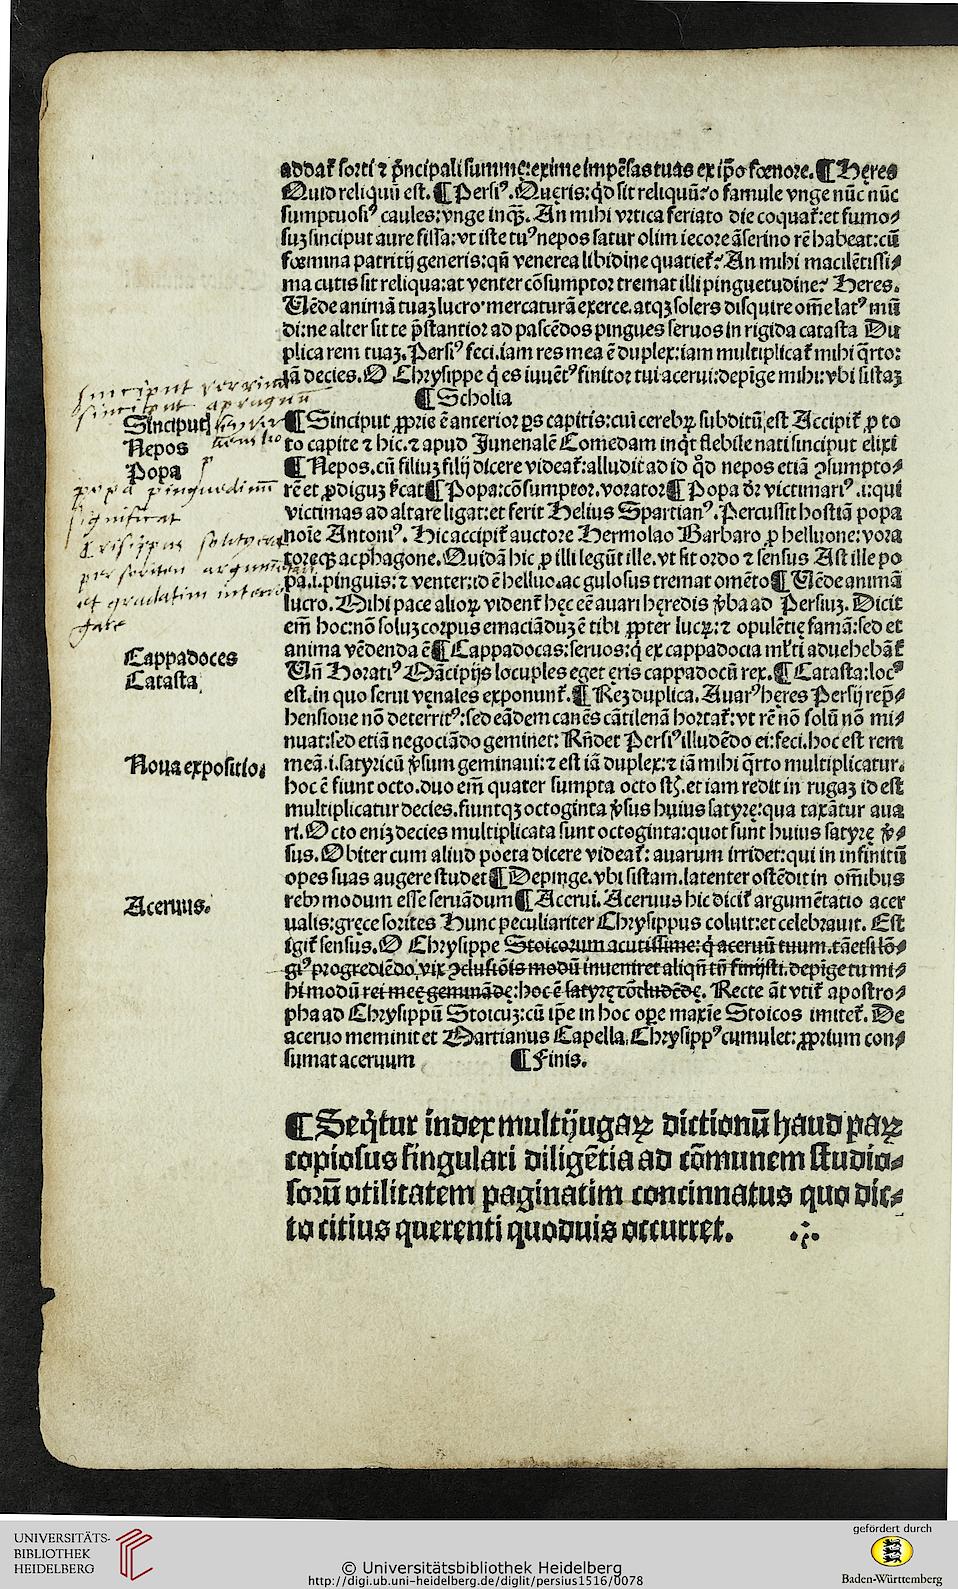 addat᷑ sorti ⁊ p̃ncipali summę:exime impẽsas tuas ex ip̃o fœnore. ¶ Hęres
Quid reliquũ est. ¶ Persiꝰ. Quęris: q̇d sit reliquũ? o famule vnge nũc nũc
sumptuosiꝰ caules: vnge inqȝ̃. An mihi vrtica feriato die coquat᷑: et fumo⸗
suȝ sinciput aure fissa: vt iste tuꝰ nepos satur olim iecore ãserino rẽ habeat: cũ
fœmina patritij generis: qñ venerea libidine quatiet᷑? An mihi macilẽtissi⸗
ma cutis sit reliqua: at venter cõsumptor tremat illi pinguetudine? Heres.
Uẽde animã tuaȝ lucro· mercaturã exerce. atqȝ solers disquire om̃e latꝰ mũ
di: ne alter sit te p̃stantior ad pascẽdos pingues seruos in rigida catasta Du
plica rem tuaȝ. Persiꝰ feci. iam res mea ẽ duplex: iam multiplicat᷑ mihi q̃rto:
iã decies. O Chrysippe q̇ es iuuẽtꝰ finitor tui acerui: depĩge mihi: vbi sistaȝ
¶ Scholia
Sinciput
¶ Sinciput ꝓprie ẽ anterior ꝑs capitis: cui cerebꝝ subditũ est Accipit᷑ ꝓ to
Nepos
to capite ⁊ hic. ⁊ apud Junenalẽ Comedam inq̇t flebile nati sinciput elixi
Popa
¶ Nepos. cũ filiuȝ filij dicere videat᷑: alludit ad id qͦd nepos etiã ꝯsumpto⸗
popa pinguedinem
rẽ et ꝓdiguȝ s̃cat ¶ Popa: cõsumptor. vorator ¶ Popa dr̃ victimariꝰ .i: qui
significat
victimas ad altare ligat: et ferit Helius Spartianꝰ. Percussit hostiã popa
noĩe Antoniꝰ. Hic accipit᷑ auctore Hermolao Barbaro ꝓ helluone: vora
toreqȝ ac phagone. Quidã hic ꝓ illi legũt ille. vt sit ordo ⁊ sensus Ast ille po
pa .i. pinguis: ⁊ venter: id ẽ helluo. ac gulosus tremat omẽto ¶ Uẽde animã
et gradatim interro
lucro. Mihi pace alioꝝ vident᷑ hęc eẽ auari hęredis v̾ba ad Persiuȝ. Dicit
gate
em̃ hoc: nõ soluȝ corpus emaciãduȝ ẽ tibi ꝓpter lucꝝ: ⁊ opulẽtię famã: sed et
Cappadoces
anima vẽdenda ẽ ¶ Cappadocas: seruos: q̇ ex cappadocia ml̃ti aduehebãt᷑
Catasta
Uñ Horatiꝰ Mãcipijs locuples eget ęris cappadocũ rex. ¶ Catasta: locꝰ
est. in quo serui vęnales exponunt᷑. ¶ Reȝ duplica. Auarꝰ hęres Persij rep̃⸗
hensione nõ deterritꝰ: sed eãdem canẽs cãtilenã hortat᷑: vt rẽ nõ solũ nõ mi⸗
nuat: sed etiã negociãdo geminet: Rñdet Persiꝰ illudẽdo ei: feci. hoc est rem
Noua expositio.
meã .i. satyricũ v̾sum geminaui: ⁊ est iã duplex: ⁊ iã mihi q̃rto multiplicatur.
hoc ẽ fiunt octo. duo em̃ quater sumpta octo st̃. et iam redit in rugaȝ id est
multiplicatur decies. fiuntqȝ octoginta v̾sus huius satyrę: qua taxãtur aua
ri. Octo eniȝ decies multiplicata sunt octoginta: quot sunt huius satyrę v̾⸗
sus. Obiter cum aliud poeta dicere videat᷑: auarum irridet: qui in infinitũ
opes suas augere studet ¶ Depinge. vbi sistam. latenter ostẽdit in om̃ibus
Aceruus.
rebꝰ modum esse seruãdum ¶ Acerui. Aceruus hic dicit᷑ argumẽtatio acer
ualis: gręce sorites Hunc peculiariter Chrysippus coluit: et celebrauit. Est
igit᷑ sensus. O Chrysippe Stoicorum acutissime: q̇ aceruũ tuum. tãetsi lõ⸗
giꝰ progrediẽdo, vix ꝯclusiõis modũ inueniret aliqñ tñ finijsti. depĩge tu mi⸗
hi modũ rei meę geminãdę: hoc ẽ satyrę cõcludẽdę. Recte aũt vtit᷑ apostro⸗
pha ad Chrysippũ Stoicuȝ: cũ ip̃e in hoc oꝑe maxie Stoicos imitet᷑. De
aceruo meminit et Martianus Capella. Chrysippꝰ cumulet: ꝓprium con⸗
sumat aceruum ¶ Finis.
¶ Seq̇tur index multijugaꝝ dictionũ haud paꝝ
copiosus singulari diligẽtia ad cõmunem studio⸗
sorũ vtilitatem paginatim concinnatus quo dic⸗
to citius querenti quoduis occurret.
UNIVERSITÄTS-
BIBLIOTHEK
HEIDELBERG
© Universitätsbibliothek Heidelberg
http://digi.ub.uni-heidelberg.de/diglit/persius1516/0078
gefördert durch
Baden-Württemberg